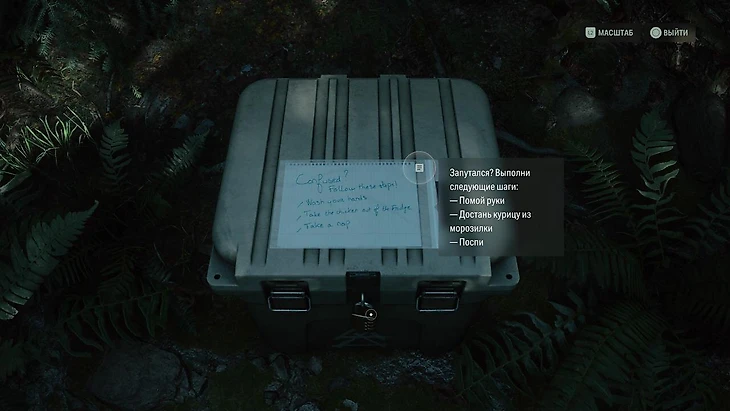 L2 МАСШТАБ
ВЫЙТИ
Confused?
Follow these steps!
Wash your hands
Take the chicken out of the fridge
Take a nap
Запутался? Выполни
следующие шаги:
— Помой руки
— Достань курицу из
морозилки
— Поспи